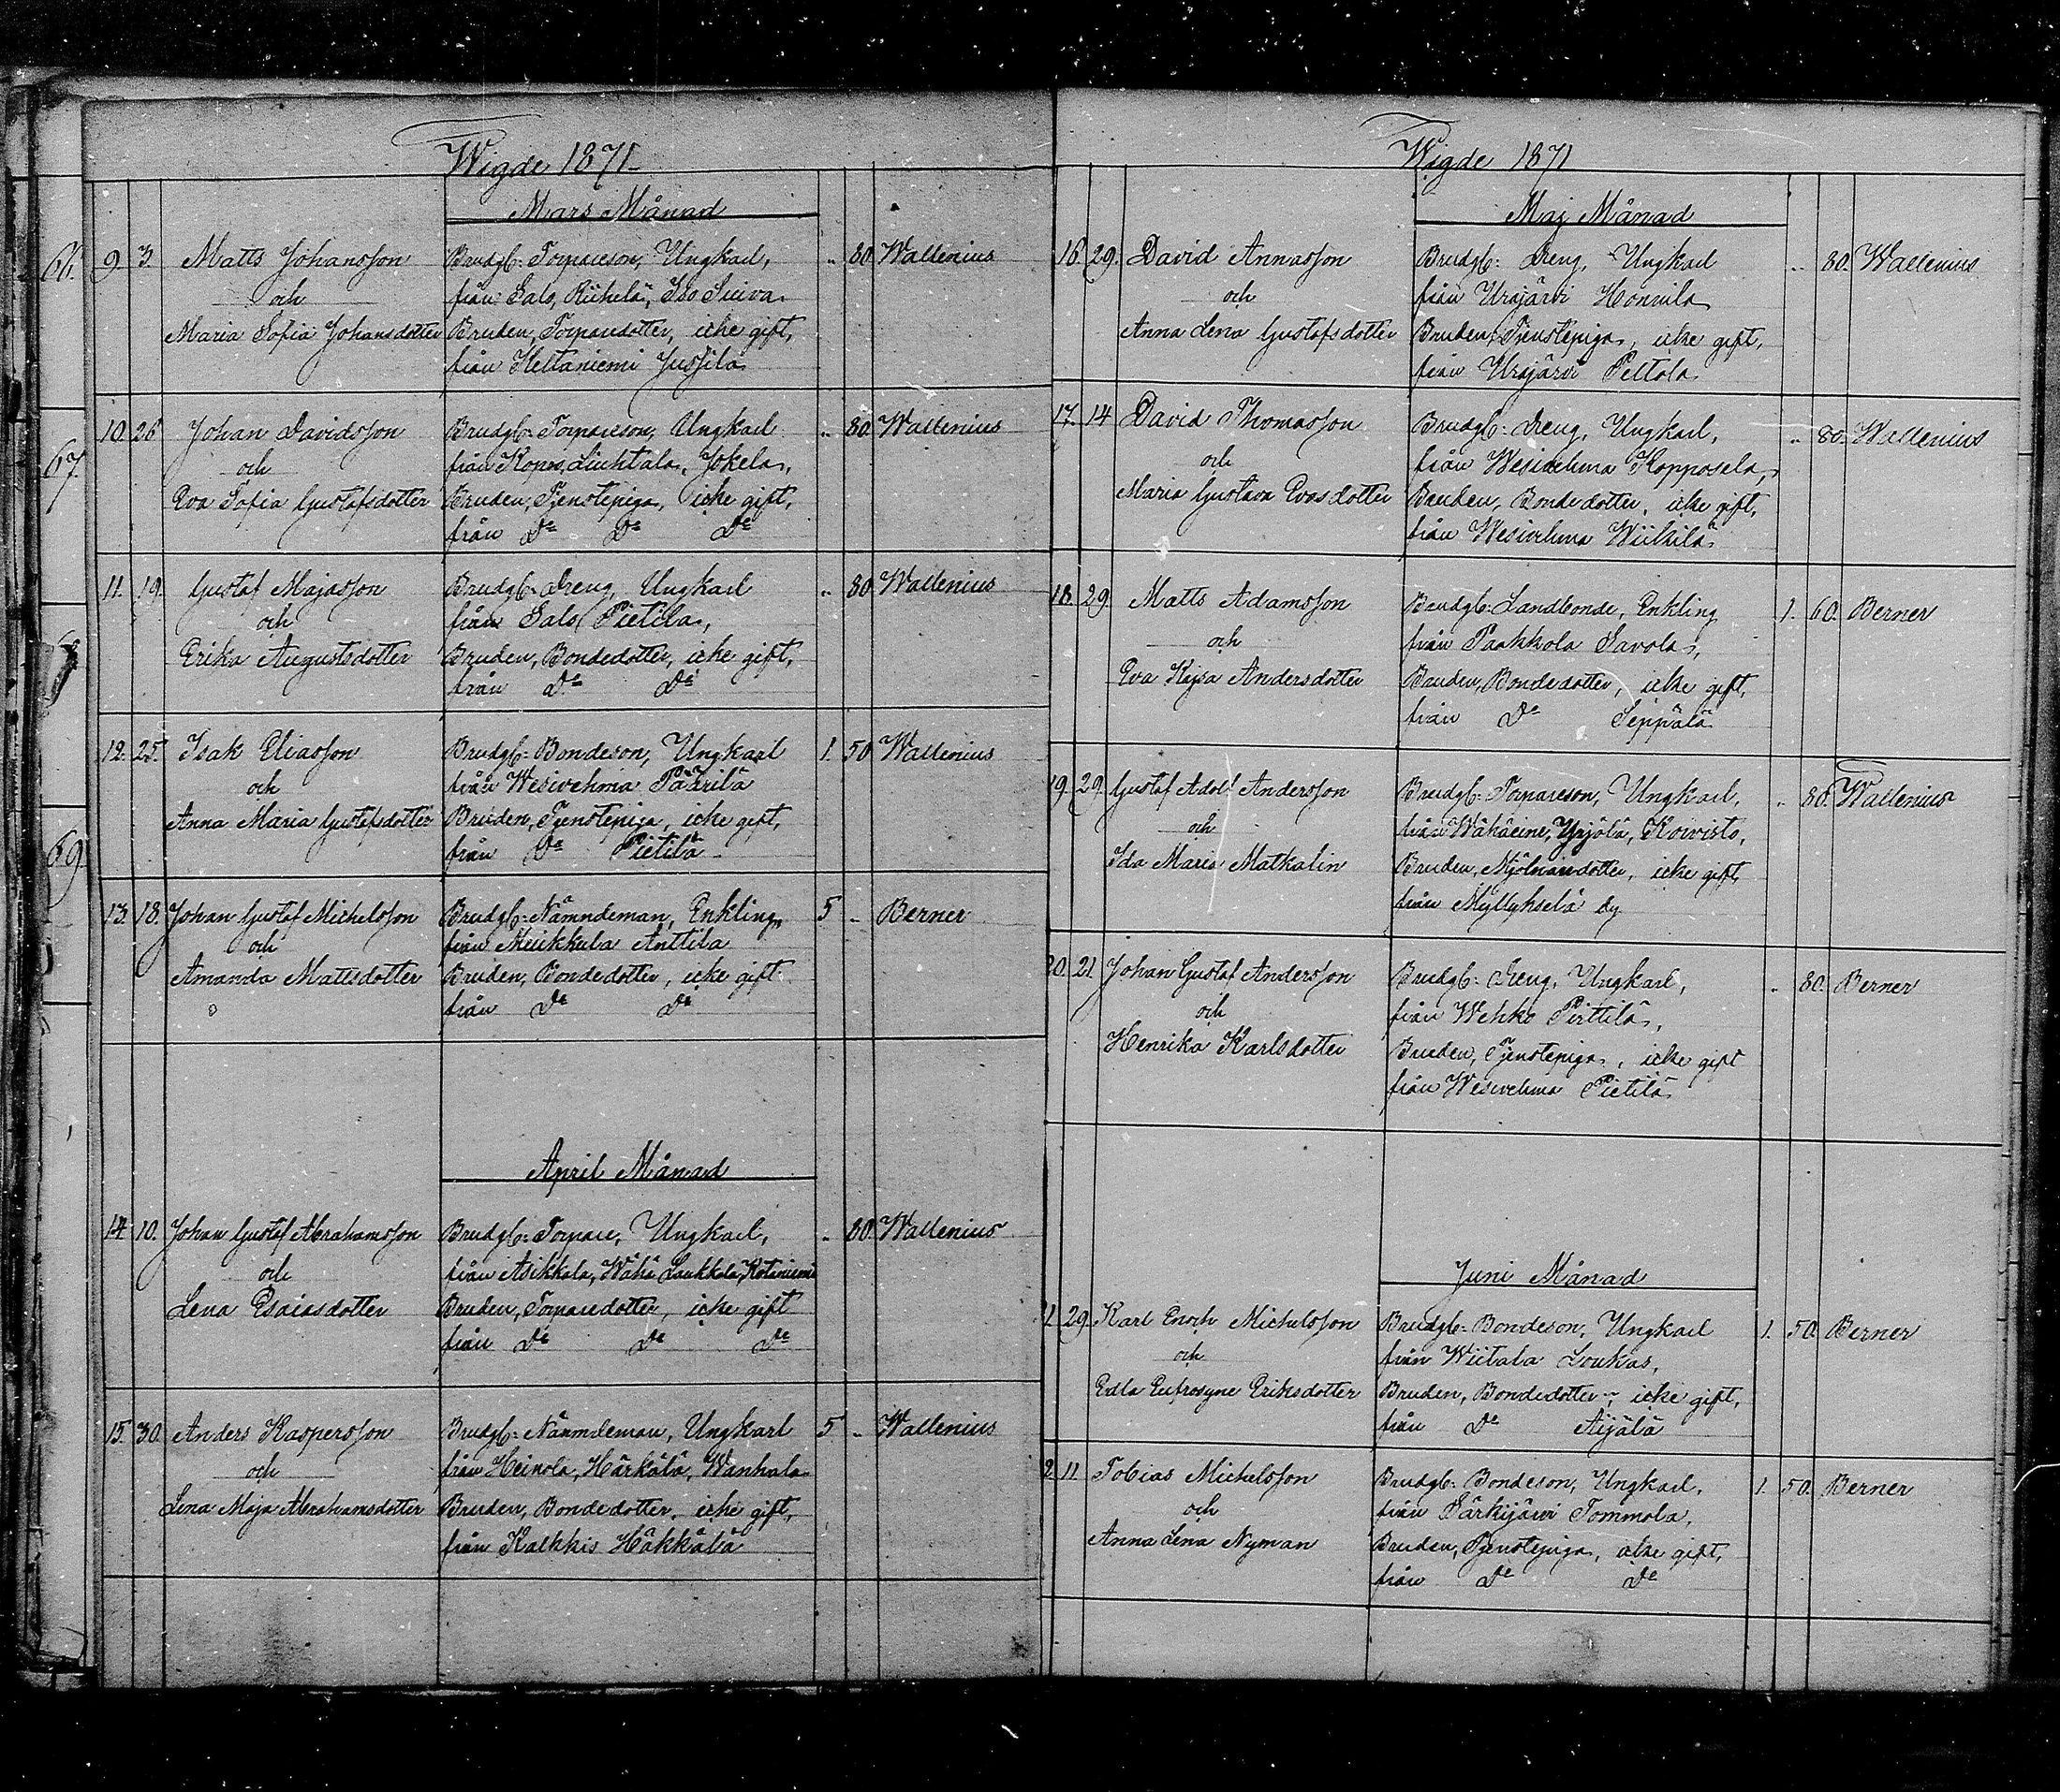 Wigde 1871
Mars Månad
66.
9. 3. Matts Johansson Brudg: Torpareson, Ungkarl, „ 80 Wallenius
och från Salo, Riihelä, Iso Suiva.
Maria Sofia Johansdotter Bruden, Torparedotter, icke gift,
från Keltaniemi Jussila
67
10. 26 Johan Davidsson Brudg: Torpareson, Ungkarl „ 80 Wallenius
och från Kopos, Liuhtala, Jokela,
Eva Sofia Gustafsdotter Bruden, Tjenstepiga, icke gift,
från D:o D:o D:o
11. 19. Gustaf Majasson Brudg: Dreng, Ungkarl „ 80 Wallenius
och från Salo, Pietila,
Erika Augustsdotter Bruden, Bondedotter, icke gift,
från D:o D:o
12. 25. Isak Eliasson Brudg: Bondeson, Ungkarl 1. 50 Wallenius
och från Wesivehma Päärilä
Anna Maria Gustafsdotter Bruden, Tjenstepiga, icke gift,
69
från D:o Pietilä
13. 18. Johan Gustaf Michelsson Brudg: Nämndeman, Enkling, 5 „ Berner
och från Muikkula Anttila
Amanda Mattsdotter Bruden, Bondedotter, icke gift
från D:o D:o
April Månad
14. 10. Johan Gustaf Abrahamsson Brudg: Torpare, Ungkarl, „ 80. Wallenius
och från Asikkala, Wähä Laukkala, Kotaniemi
Lena Esaiasdotter Bruden, Torparedotter, icke gift
från D:o D:o D:o
15. 30. Anders Kaspersson Brudg: Nämndeman, Ungkarl 5 „ Wallenius
och från Heinola, Härkälä, Wanhala
Lena Maja Abrahamsdotter Bruden, Bondedotter, icke gift,
från Kalkkis Häkkälä
Wigde 1871
Maj Månad
16. 29. David Annasson Brudg: Dreng, Ungkarl „ 80. Wallenius
och från Urajärvi Honnila
Anna Lena Gustafsdotter Bruden, Tjenstepiga, icke gift,
från Urajärvi Peltola
17. 14 David Thomasson Brudg: Dreng, Ungkarl, „ 80. Wallenius
och från Wesivehma Kopposela,
Maria Gustava Evasdotter Bruden, Bondedotter, icke gift,
från Wesivehma Wiikilä
18. 29. Matts Adamsson Brudg: Landbonde, Enkling 1. 60. Berner
och från Paakkola Savola,
Eva Kajsa Andersdotter Bruden, Bondedotter, icke gift,
från D:o Seppälä
19. 29. Gustaf Adolf Andersson Brudg: Torpareson, Ungkarl, „ 80. Wallenius
och från Wähäeine, Yrjölä, Koivisto,
Ida Maria Matkalin Bruden, Mjölnaredotter, icke gift,
från Myllykselä by
20. 21 Johan Gustaf Andersson Brudg: Dreng, Ungkarl, „ 80. Berner
och från Wehko Pirttilä,
Henrika Karlsdotter Bruden, Tjenstepiga, icke gift
från Wesivehma Pietilä
Juni Månad
1 29. Karl Enoch Michelsson Brudg: Bondeson, Ungkarl 1. 50. Berner
och från Wiitala Loukas,
Edla Eufrosyne Eriksdotter Bruden, Bondedotter, icke gift,
från D:o Äijälä
2. 11 Tobias Michelsson Brudg: Bondeson, Ungkarl, 1. 50. Berner
och från Särkijärvi Tommola,
Anna Lena Nyman Bruden, Tjenstepiga, icke gift,
från D:o D:o